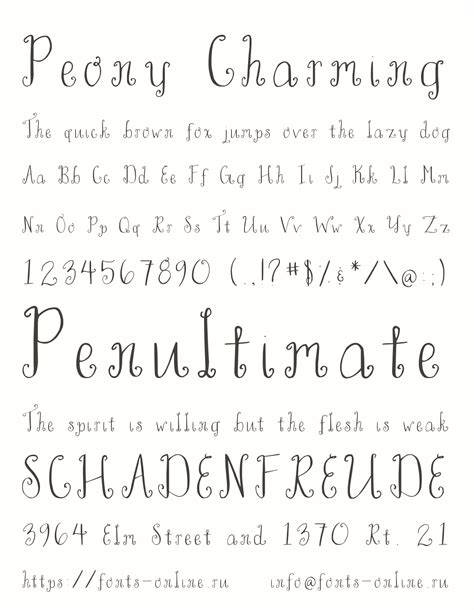 Peony Charming
The quick brown fox jumps over the lazy dog
Aa Bb Cc Dd Ee Ff Gg Hh Ii Jj Kk Ll Mm
Nn Oo Pp Qq Rr Ss Tt Uu Vv Ww Xx Yy Zz
1234567890 (.,!?#$/%&*/\@:;)
Penultimate
The spirit is willing but the flesh is weak
SCHADENFREUDE
3964 Elm Street and 1370 Rt. 21
https://fonts-online.ru info@fonts-online.ru